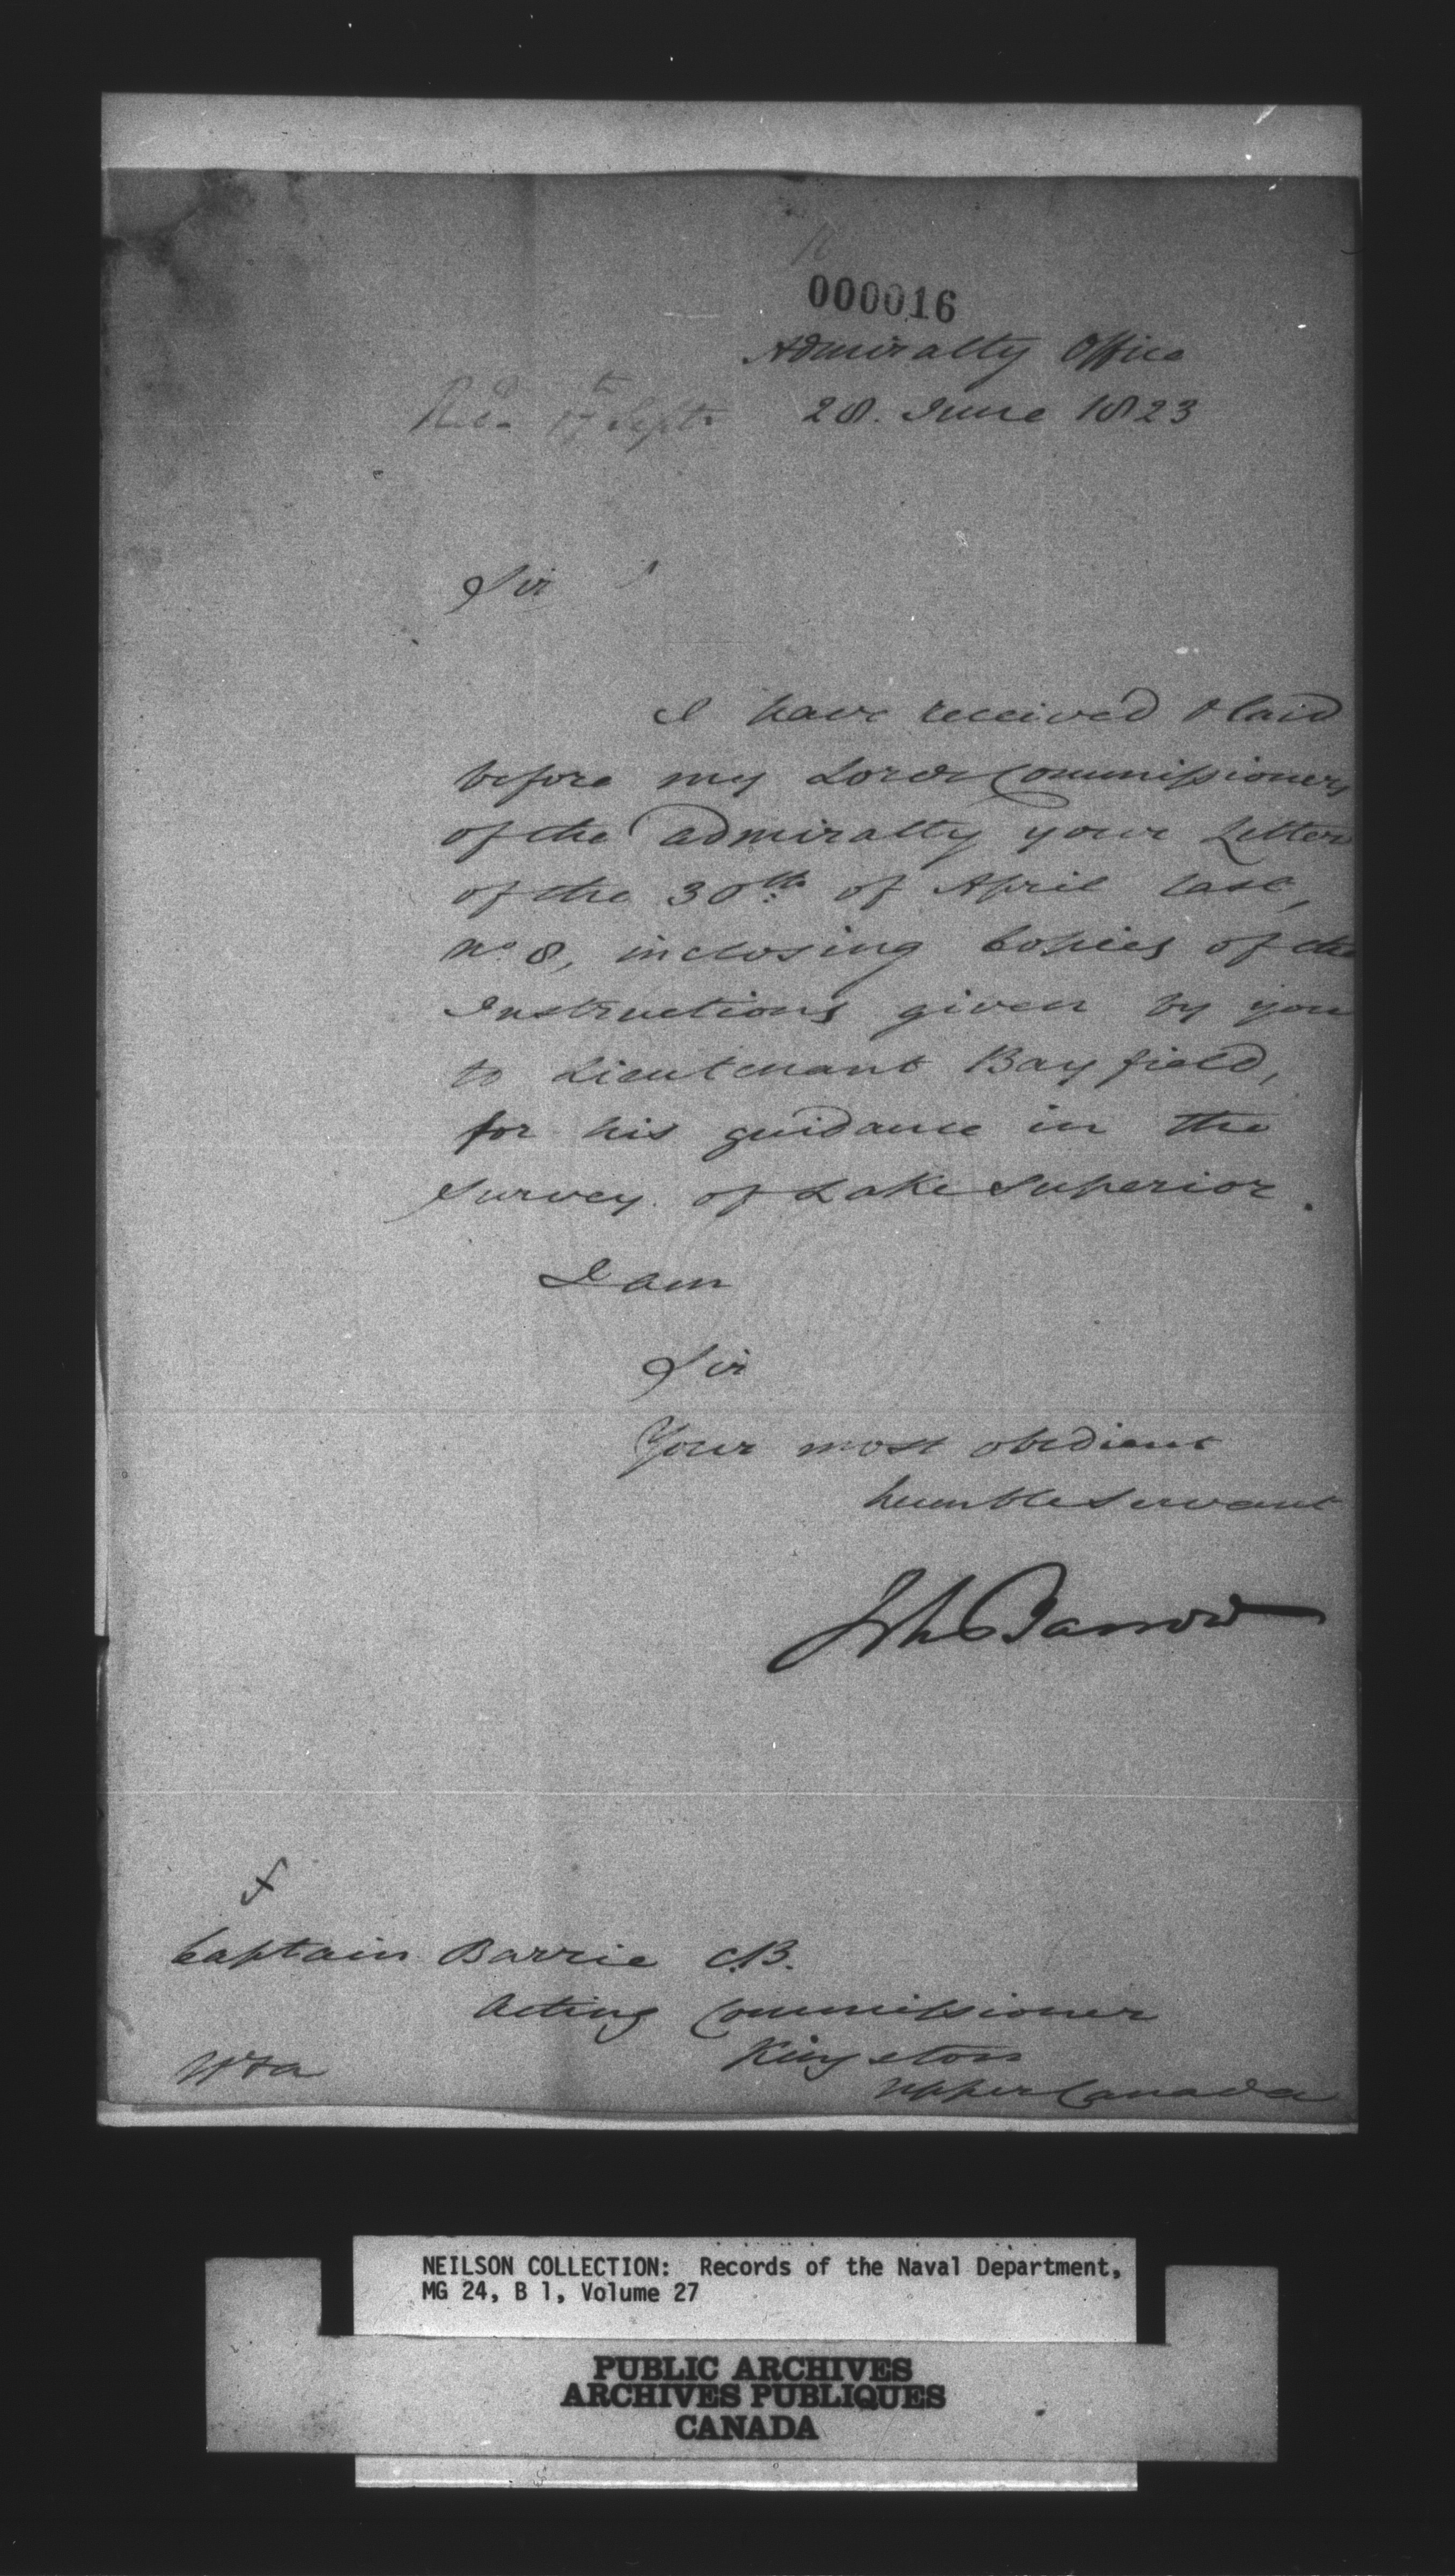 000016
Admiralty Office
Recd. 17th Septr 28. June 1823
Sir
I have received & laid
before my Lords Commissioners
of the Admiralty your Letter
of the 30th of April last,
No. 8, inclosing Copies of the
Instructions given by you
to Lieutenant Bayfield,
for his guidance in the
Survey of Lake Superior.
I am
Sir
Your most obedient
humble Servant
John Barrow
Captain Barrie C.B.
Acting Commissioner
Kingston
Upper Canada
NEILSON COLLECTION: Records of the Naval Department,
MG 24, B 1, Volume 27
PUBLIC ARCHIVES
ARCHIVES PUBLIQUES
CANADA